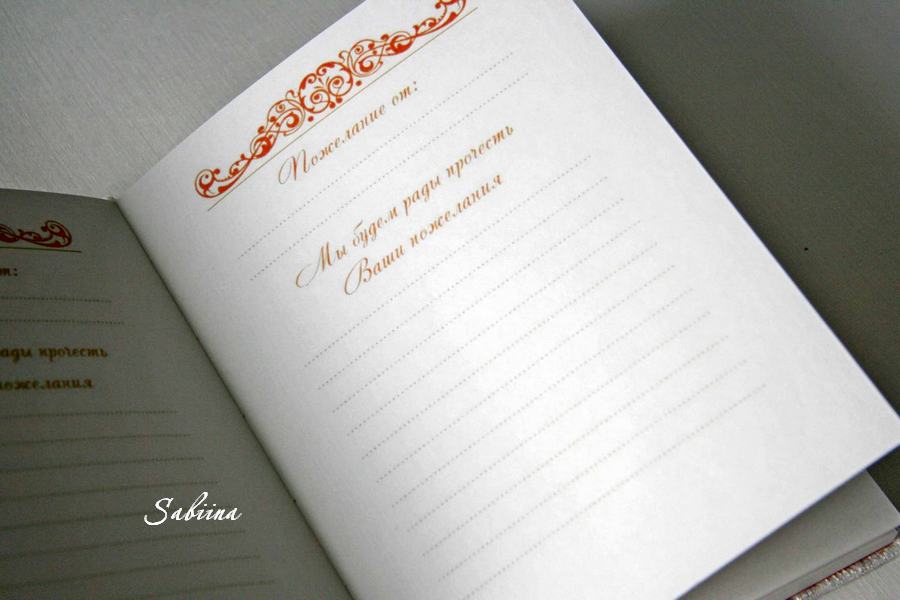 от:
рады прочесть
пожелания
Пожелание от:
Мы будем рады прочесть
Ваши пожелания
Sabiina